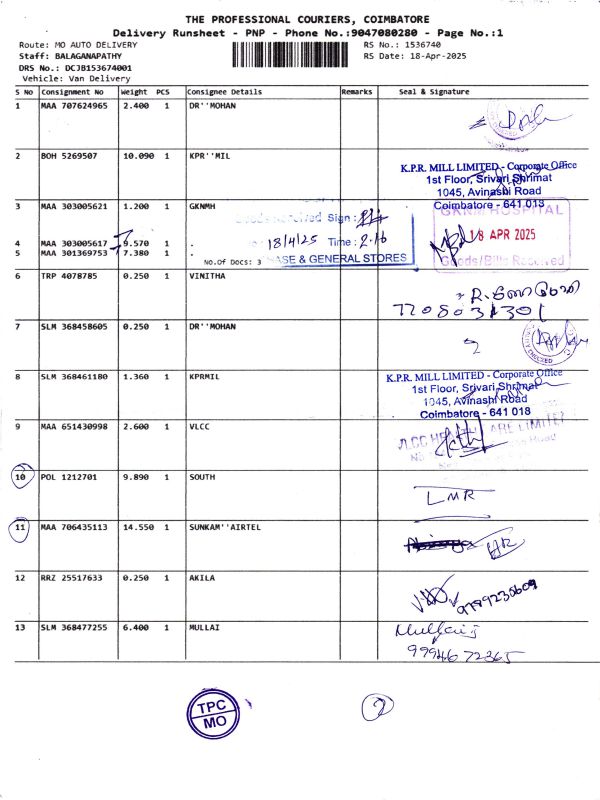 THE PROFESSIONAL COURIERS, COIMBATORE
Delivery Runsheet - PNP - Phone No.:9047080280 - Page No.:1
Route: MO AUTO DELIVERY
Staff: BALAGANAPATHY
DRS No.: DCJB153674001
Vehicle: Van Delivery
RS No.: 1536740
RS Date: 18-Apr-2025
S No Consignment No Weight PCS Consignee Details Remarks Seal & Signature
1 MAA 707624965 2.400 1 DR''MOHAN
2 BOH 5269507 10.090 1 KPR''MIL
K.P.R. MILL LIMITED - Corporate Office
1st Floor, Srivari Shrimat
1045, Avinashi Road
Coimbatore - 641 018
3 MAA 303005621 1.200 1 GKNMH
Sign :
GKNM HOSPITAL
4 MAA 303005617 9.570 1 .
18/4/25 Time : 2.16
18 APR 2025
5 MAA 301369753 7.380 1 .
No.Of Docs: 3
ASE & GENERAL STORES
Goods/Bills Received
6 TRP 4078785 0.250 1 VINITHA
7 SLM 368458605 0.250 1 DR''MOHAN
8 SLM 368461180 1.360 1 KPRMIL
K.P.R. MILL LIMITED - Corporate Office
1st Floor, Srivari Shrimat
1045, Avinashi Road
Coimbatore - 641 018
9 MAA 651430998 2.600 1 VLCC
10 POL 1212701 9.890 1 SOUTH
LMR
11 MAA 706435113 14.550 1 SUNKAM''AIRTEL
12 RRZ 25517633 0.250 1 AKILA
13 SLM 368477255 6.400 1 MULLAI
TPC
MO
2